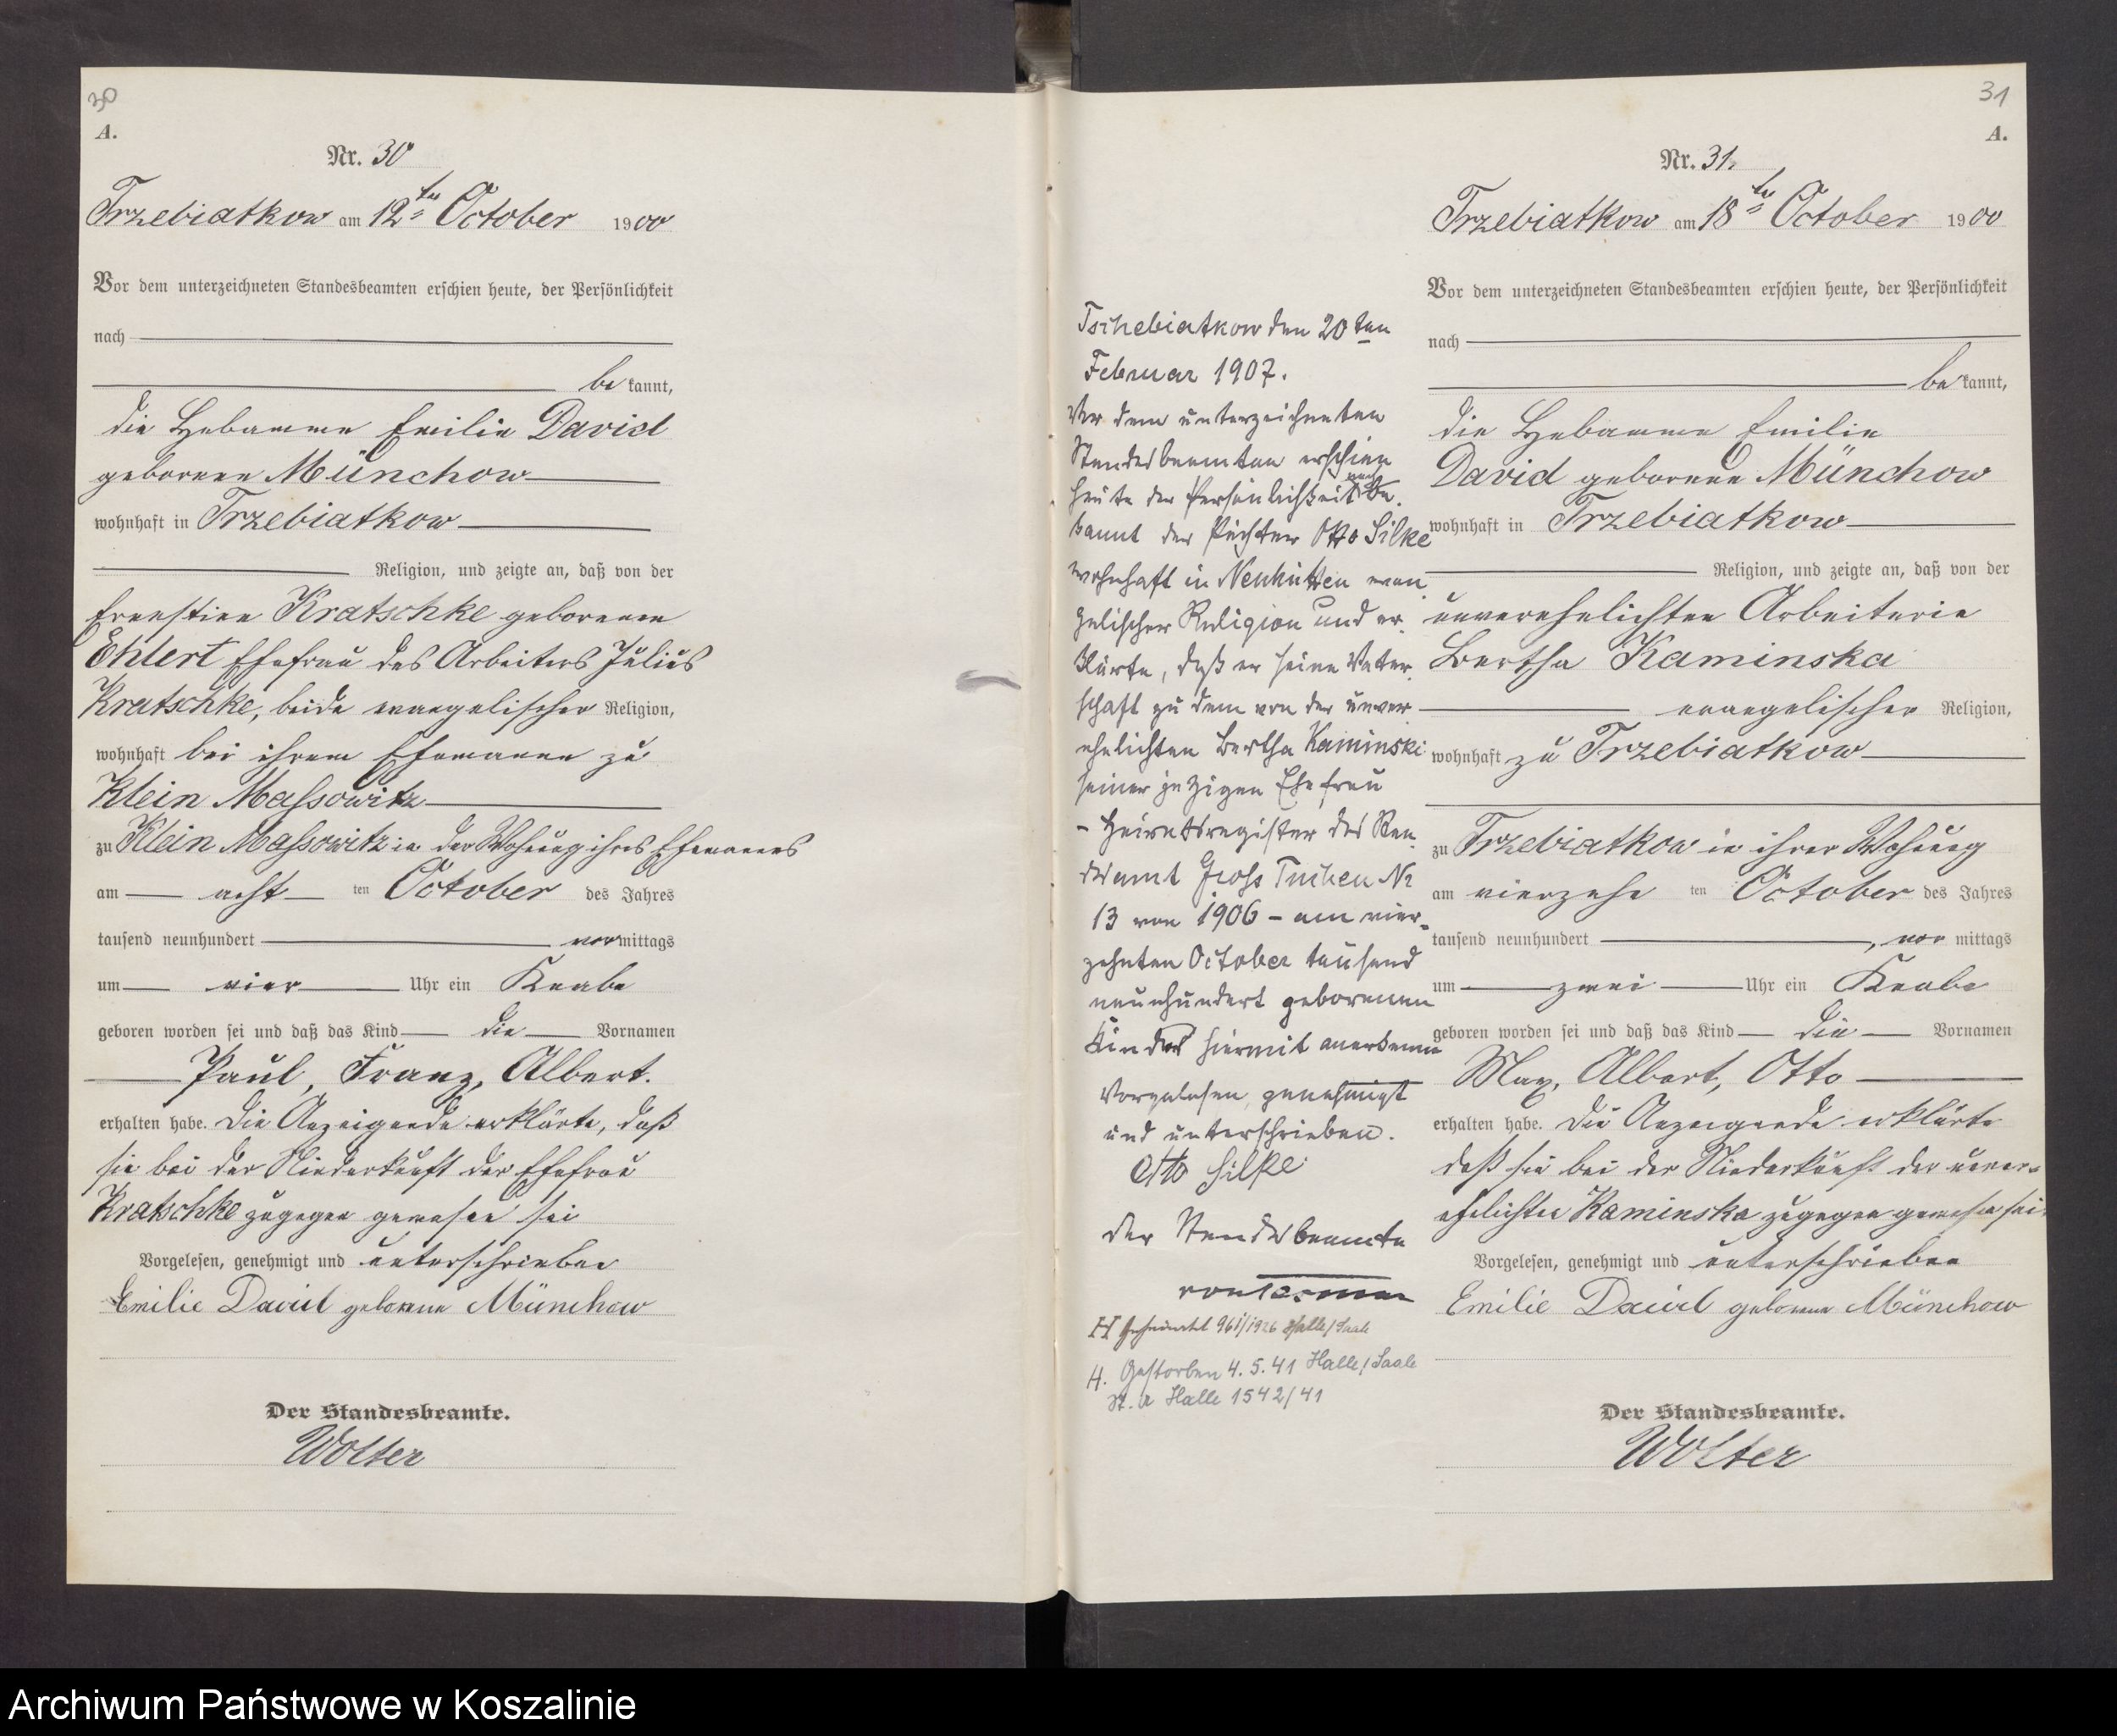 30
A.
Nr. 30
Trzebiatkow am 12ten October 1900
Vor dem unterzeichneten Standesbeamten erschien heute, der Persönlichkeit
nach
be kannt,
die Hebamme Emilie David
geborene Münchow
wohnhaft in Trzebiatkow
Religion, und zeigte an, daß von der
Ernestine Kratschke geborenen
Ehlert Ehefrau des Arbeiters Julius
Kratschke, beide evangelischer Religion,
wohnhaft bei ihrem Ehemanne zu
Klein Massowitz
zu Klein Massowitz in der Wohnung ihres Ehemannes
am acht ten October des Jahres
tausend neunhundert vormittags
um vier Uhr ein Knabe
geboren worden sei und daß das Kind die Vornamen
Paul, Franz, Albert.
erhalten habe. Die Anzeigende erklärte, daß
sie bei der Niederkunft der Ehefrau
Kratschke zugegen gewesen sei
Vorgelesen, genehmigt und unterschrieben
Emilie David geborene Münchow
Der Standesbeamte.
Wolter
31
A.
Nr. 31.
Trzebiatkow am 18ten October 1900
Vor dem unterzeichneten Standesbeamten erschien heute, der Persönlichkeit
nach
be kannt,
die Hebamme Emilie
David geborene Münchow
wohnhaft in Trzebiatkow
Religion, und zeigte an, daß von der
unverehelichten Arbeiterin
Bertha Kaminska
evangelischer Religion,
wohnhaft zu Trzebiatkow
zu Trzebiatkow in ihrer Wohnung
am vierzehn ten October des Jahres
tausend neunhundert, vor mittags
um zwei Uhr ein Knabe
geboren worden sei und daß das Kind die Vornamen
Max, Albert, Otto
erhalten habe. Die Anzeigende erklärte
daß sie bei der Niederkunft der unver-
ehelichten Kaminska zugegen gewesen sei.
Vorgelesen, genehmigt und unterschrieben
Emilie David geborene Münchow
Der Standesbeamte.
Wolter
Tschebiatkow den 20ten
Februar 1907.
Vor dem unterzeichneten
Standesbeamten erschien
heute der Persönlichkeit nach be-
kannt der Pächter Otto Silke
wohnhaft in Neuhütten evan-
gelischer Religion und er-
klärte, daß er seine Vater-
schaft zu dem von der unver-
ehelichten Bertha Kaminski
seiner jetzigen Ehefrau
- Heiratsregister des Stan-
desamt Gross Tuchen Nr
13 von 1906 - am vier-
zehnten October tausend
neunhundert geborenen
Kindes hiermit anerkenne
Vorgelesen, genehmigt
und unterschrieben.
Otto Silke
Der Standesbeamte
H Geheiratet 961/1926 Halle/Saale
H. Gestorben 4.5.41 Halle/Saale
St. A Halle 1542/41
Archiwum Państwowe w Koszalinie